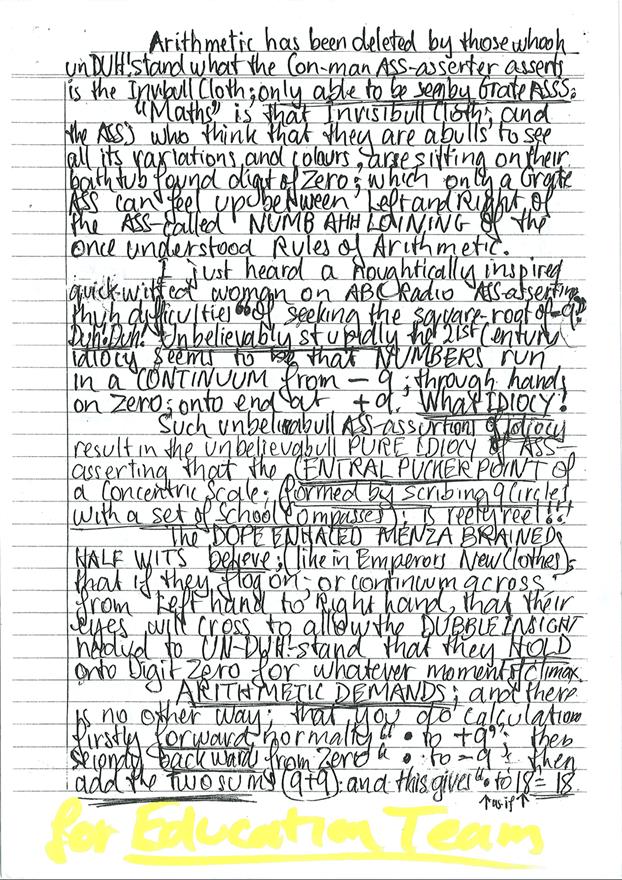 Arithmetic has been deleted by those whooh
unDUH!stand what the Con-man ASS-asserter asserts
is the Invbull Cloth; only able to be seen by Grate ASSS:
"Maths" is that Invisibull Cloth; and
the ASS's who think that they are abulls to see
all its variations, and colours, arse sitting on their
bathtub found digit of Zero; which only a Grate
ASS can feel up between Left and Right of
the ASS-called NUMB AHH LOINING of the
once understood Rules of Arithmetic.
I just heard a noughtically inspired
quick-witted woman on ABC Radio ASS-asserting
thuh difficulties "of seeking the square-root of -9."
Duh! Duh! Unbelievably stupidly the 21st Century
idiocy seems to be that NUMBERS run
in a CONTINUUM from - 9; through hands
on Zero; onto end out +9. What IDIOCY!
Such unbelievabull ASS-assurtions of Idiocy
result in the unbelievabull PURE IDIOCY of ASS-
asserting that the CENTRAL PUCKER POINT of
a Concentric Scale; (formed by scribing 9 Circles
with a set of School Compasses); is reely reel!!!
The DOPE ENHACED MENZA BRAINED
HALF WITS believe; (like in Emperors New Clothes);
that if they flog on; or continuum across
from Left hand to Right hand, that their
eyes will cross to allow the DUBBLE INSIGHT
needed to UN-DUH-stand that they HOLD
onto Digit Zero for whatever moments of climax.
ARITHMETIC DEMANDS; and there
is no other way; that you do calculation
firstly forward normally "• to +9"; then
secondly backward from Zero "• to -9"; then
add the two sums (9+9): and this gives "• to 18 = 18
↑as if↑
for Education Team